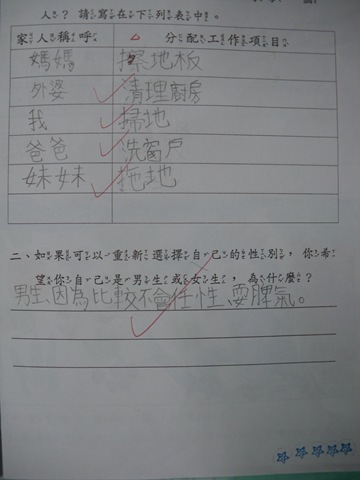 人？請寫在下列表中。
家人稱呼 分配工作項目
媽媽 擦地板
外婆 清理廚房
我 掃地
爸爸 洗窗戶
妹妹 拖地
二、如果可以重新選擇自己的性別，你希
望你自己是男生或女生，為什麼？
男生、因為比較不會任性、耍脾氣。